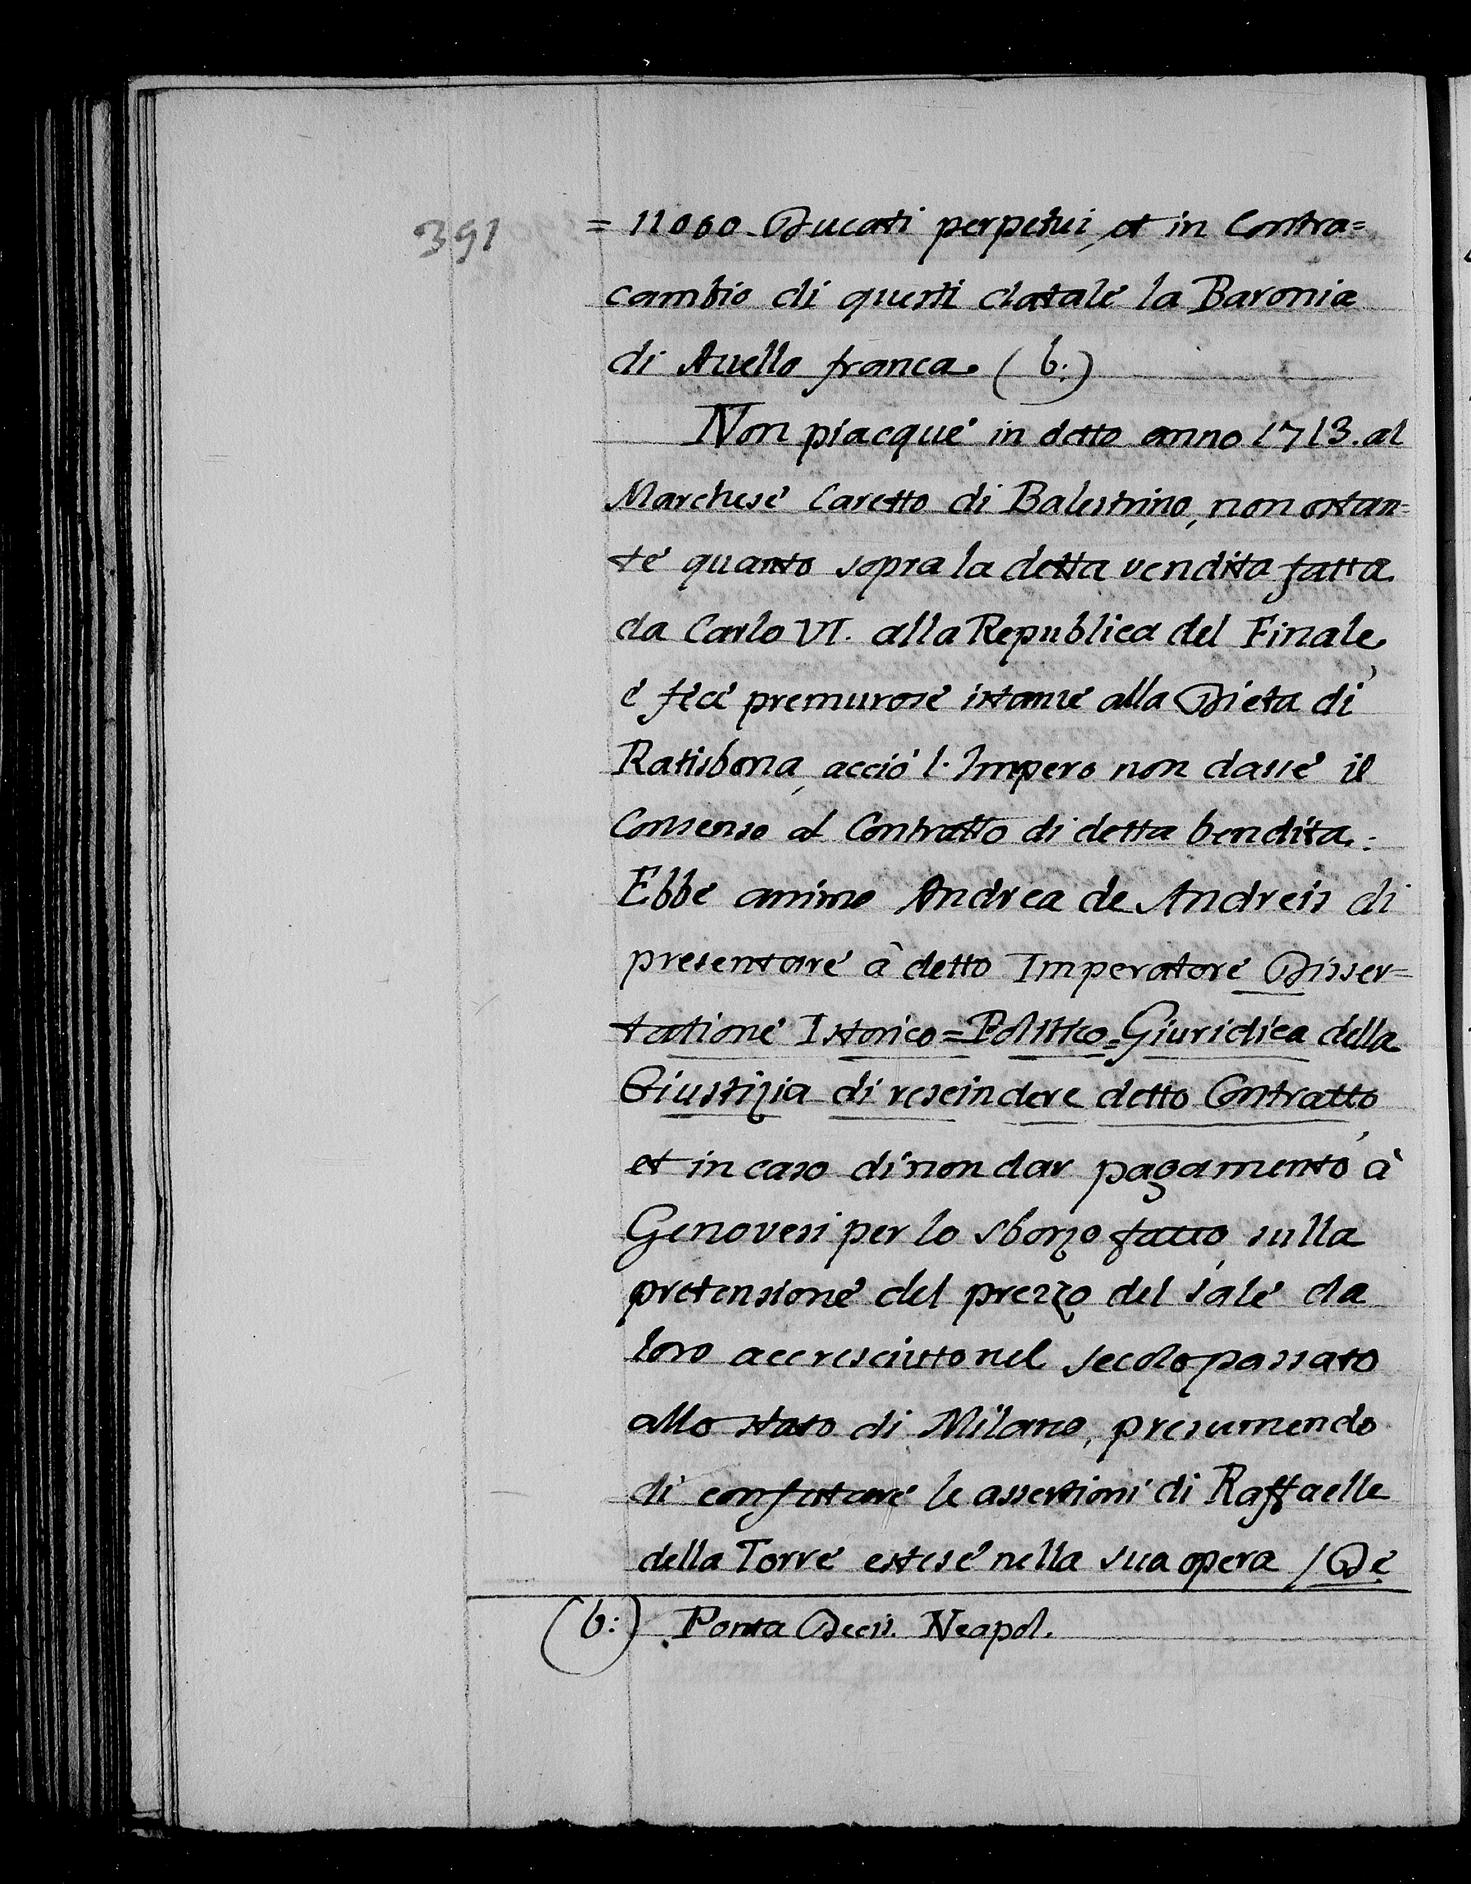 391
= 11000 Ducati perpetui, et in Contra=
cambio di questi datale la Baronia
di Auello franca. (b:)
Non piacque in detto anno 1713. al
Marchese Caretto di Balestrino, non ostan=
te quanto sopra la detta vendita fatta
da Carlo VI. alla Republica del Finale,
e fece premurose istanze alla Dieta di
Ratisbona, acciò l'Impero non dasse il
Consenso al Contratto di detta bendita.
Ebbe animo Andrea de Andreis di
presentare à detto Imperatore Disser=
tatione Istorico=Politico=Giuridica della
Giustizia di rescindere detto Contratto,
et in caso di non dar pagamento à
Genovesi per lo sborzo fatto, sulla
pretensione del prezzo del sale da
loro accresciuto nel secolo passato
allo stato di Milano, presumendo
di confutare le assertioni di Raffaelle
della Torre estese nella sua opera /De
(b:) Ponta Decis. Neapol.